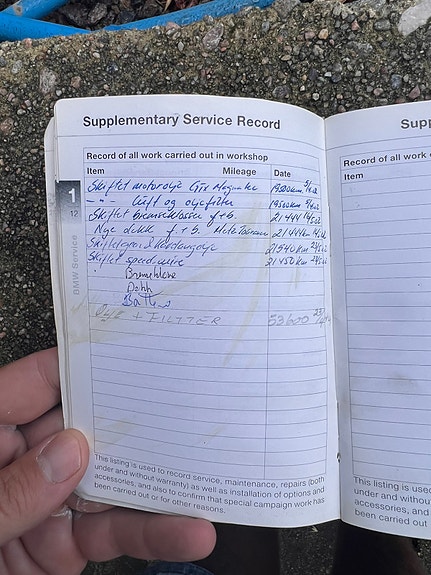 Supplementary Service Record
Record of all work carried out in workshop
Item Mileage Date
Skiftet motorolje Gtx Magnatec 19500km
-"- luft og oljefilter 19500km
Skiftet bremseklosser f+b. 21444
Nye dekk f+b. 21144km
Skiftet 21540km
Skiftet speed wire 21450km
Dekk
+ FILTTER 53600
1
12
BMW Service
This listing is used to record service, maintenance, repairs (both
under and without warranty) as well as installation of options and
accessories, and also to confirm that special campaign work has
been carried out or for other reasons.
Record of all w
Item
This listing is us
under and withou
accessories, and
been carried out